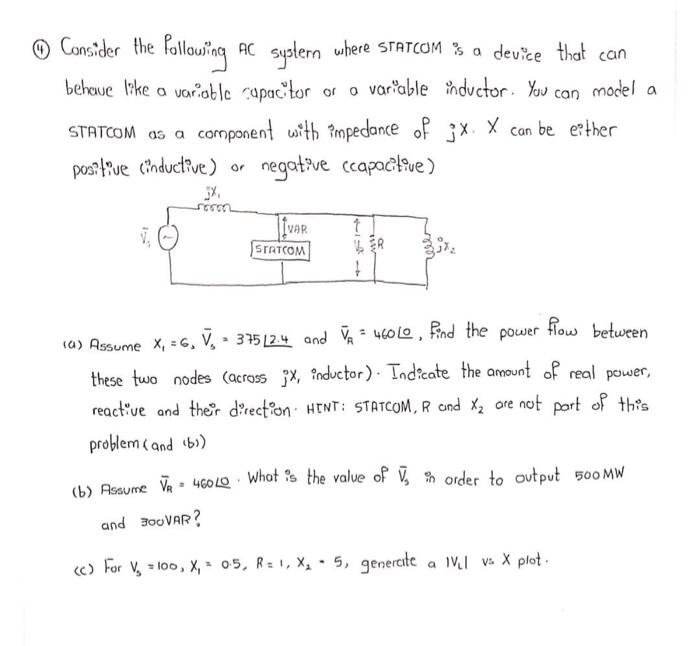 ④ Consider the following AC system where STATCOM is a device that can
behave like a variable capacitor or a variable inductor. You can model a
STATCOM as a component with impedance of jX. X can be either
positive (inductive) or negative (capacitive)
jX₁
V̄ₛ
VAR
STATCOM
R
jX₂
(a) Assume X₁ = 6, V̄ₛ = 375∠2.4 and V̄R = 460∠0, find the power flow between
these two nodes (across jX, inductor). Indicate the amount of real power,
reactive and their direction. HINT: STATCOM, R and X₂ are not part of this
problem (and (b))
(b) Assume V̄R = 460∠0. What is the value of V̄ₛ in order to output 500 MW
and 300VAR?
(c) For Vₛ = 100, X₁ = 0.5, R = 1, X₂ = 5, generate a |VL| vs X plot.